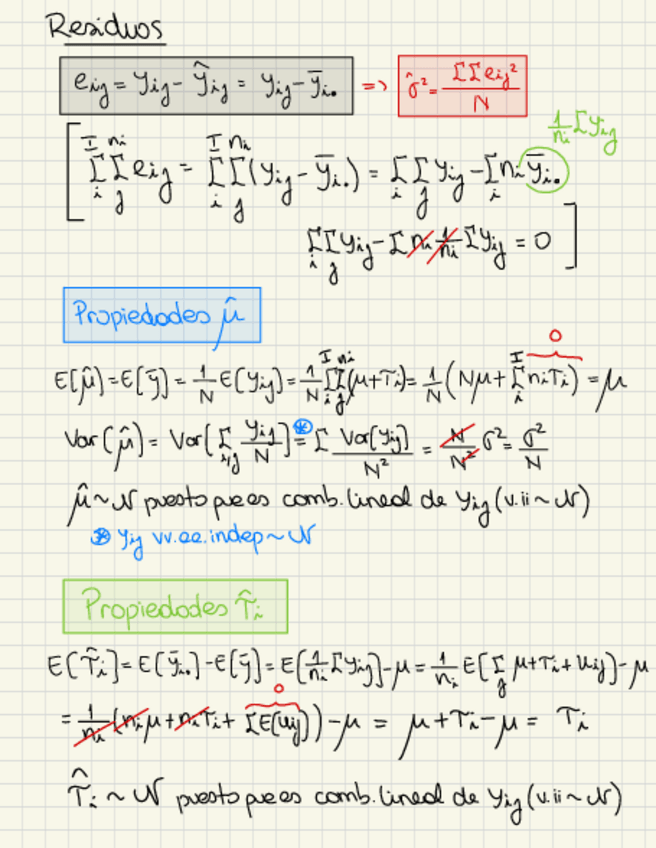 Residuos
e_ij = y_ij - ŷ_ij = y_ij - ȳ_i. => σ̂² = ΣΣe_ij² / N
1/n_i Σy_ij
[ Σ_i^I Σ_j^{n_i} e_ij = Σ_i^I Σ_j^{n_i} (y_ij - ȳ_i.) = Σ_i Σ_j y_ij - Σ_i n_i ȳ_i.
Σ_i Σ_j y_ij - Σ n_i 1/n_i Σ y_ij = 0 ]
Propiedades μ̂
0
E[μ̂] = E[ȳ] = 1/N E(y_ij) = 1/N Σ_i^I Σ_j^{n_i} (μ+τ_i) = 1/N (Nμ + Σ_i^I n_i τ_i) = μ
Var(μ̂) = Var[Σ_{i,j} y_ij/N] =^⊛ Σ Var[y_ij]/N² = N/N² σ² = σ²/N
μ̂ ~ N puesto que es comb. lineal de y_ij (v.ii ~ N)
⊛ y_ij vv.aa. indep ~ N
Propiedades τ̂_i
E[τ̂_i] = E[ȳ_i.] - E[ȳ] = E[1/n_i Σ y_ij] - μ = 1/n_i E[Σ_j μ+τ_i+u_ij] - μ
0
= 1/n_i (n_i μ + n_i τ_i + ΣE[u_ij]) - μ = μ + τ_i - μ = τ_i
τ̂_i ~ N puesto que es comb. lineal de y_ij (v.ii ~ N)